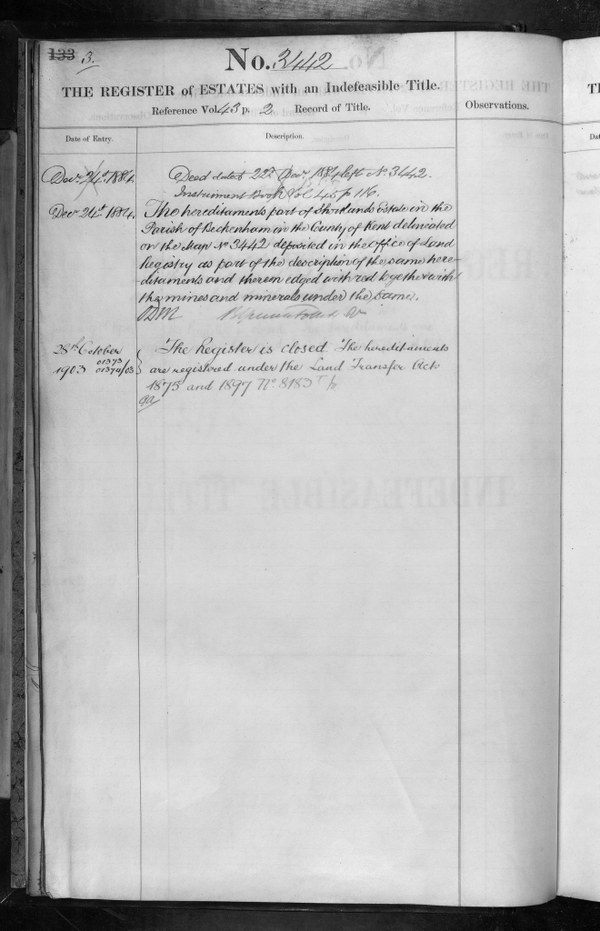 133 3.
No. 3442
THE REGISTER of ESTATES with an Indefeasible Title.
Reference Vol. 43 p. 2 Record of Title.
Observations.
Date of Entry.
Description.
Decr 24th 1884.
Deed dated 22d Decr 1884 left No 3442.
Instrument Book Vol 45 p 116.
Decr 24th 1884.
The hereditaments part of Shortlands Estate in the
Parish of Beckenham in the County of Kent delineated
on the Map No 3442 deposited in the office of Land
Registry as part of the description of the same here-
ditaments and therein edged with red together with
the mines and minerals under the same.
28th October
1903
01373
01374/03
The Register is closed The hereditaments
are registered under the Land Transfer Acts
1875 and 1897 No 8183
TH
Da